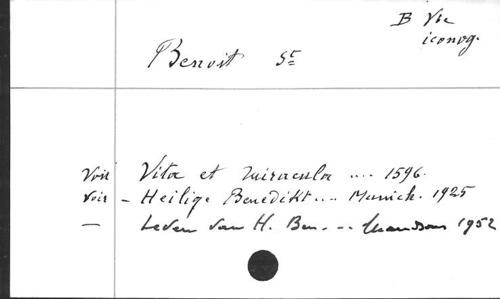 B Vie
iconog.
Benoit St
Voir Vita et miracula .... 1596.
Voir - Heilige Benedikt ... Munich. 1925
— Leven van H. Ben. ... 1952